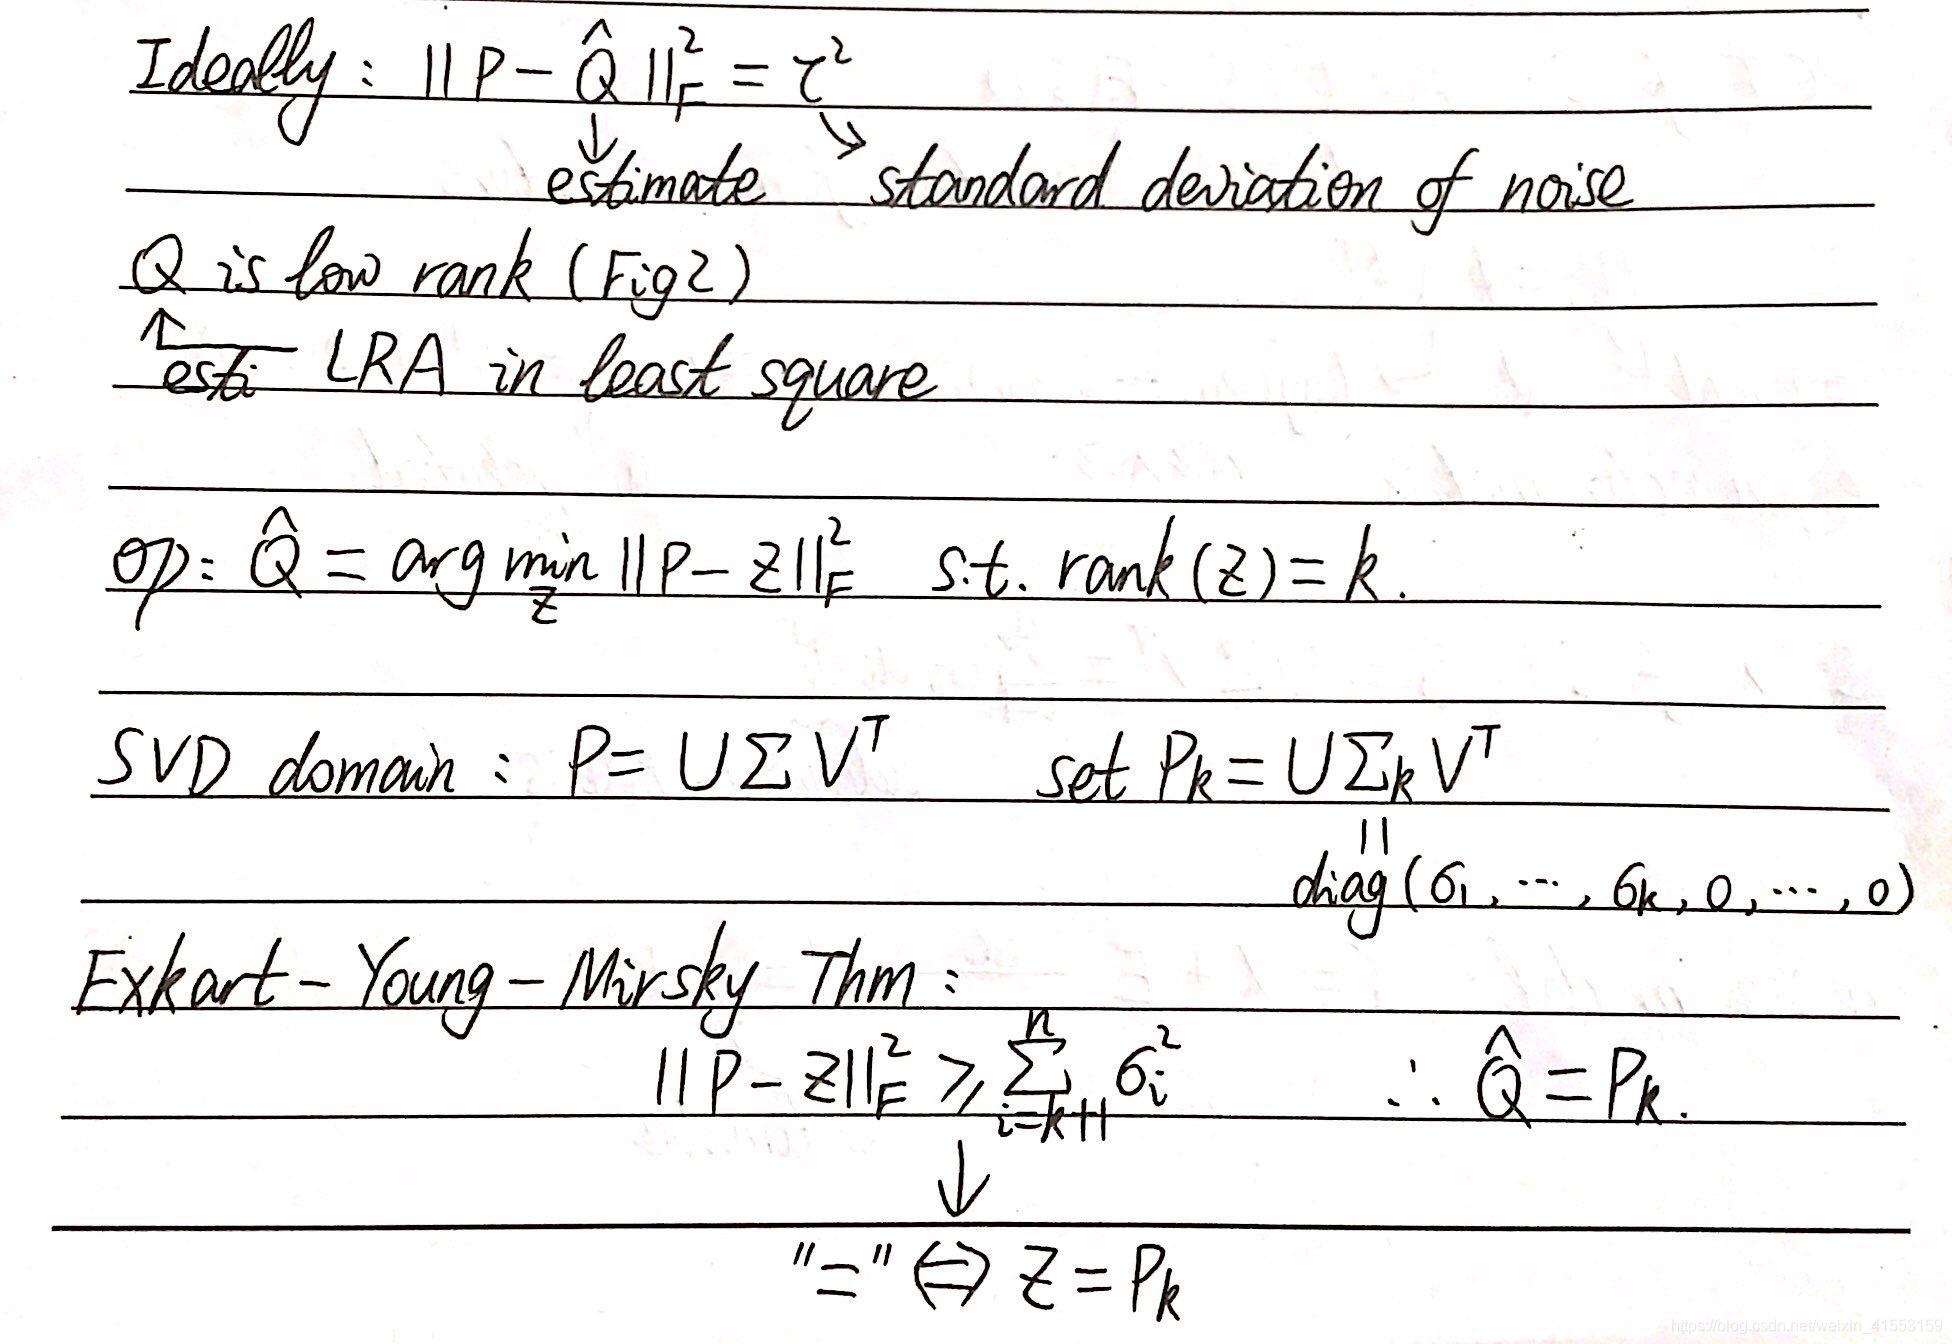 Ideally : ||P - Q̂||²_F = τ²
↓ ↘
estimate standard deviation of noise
Q is low rank (Fig2)
↑ esti LRA in least square
op: Q̂ = arg min_z ||P - Z||²_F s.t. rank(Z) = k.
SVD domain : P = UΣV^T set P_k = UΣ_kV^T
||
diag(σ₁, ..., σ_k, 0, ..., 0)
Exkart - Young - Mirsky Thm :
||P - Z||²_F ⩾ Σ_{i=k+1}^n σ_i² ∴ Q̂ = P_k.
↓
"=" ⇔ Z = P_k
https://blog.csdn.net/weixin_41553159